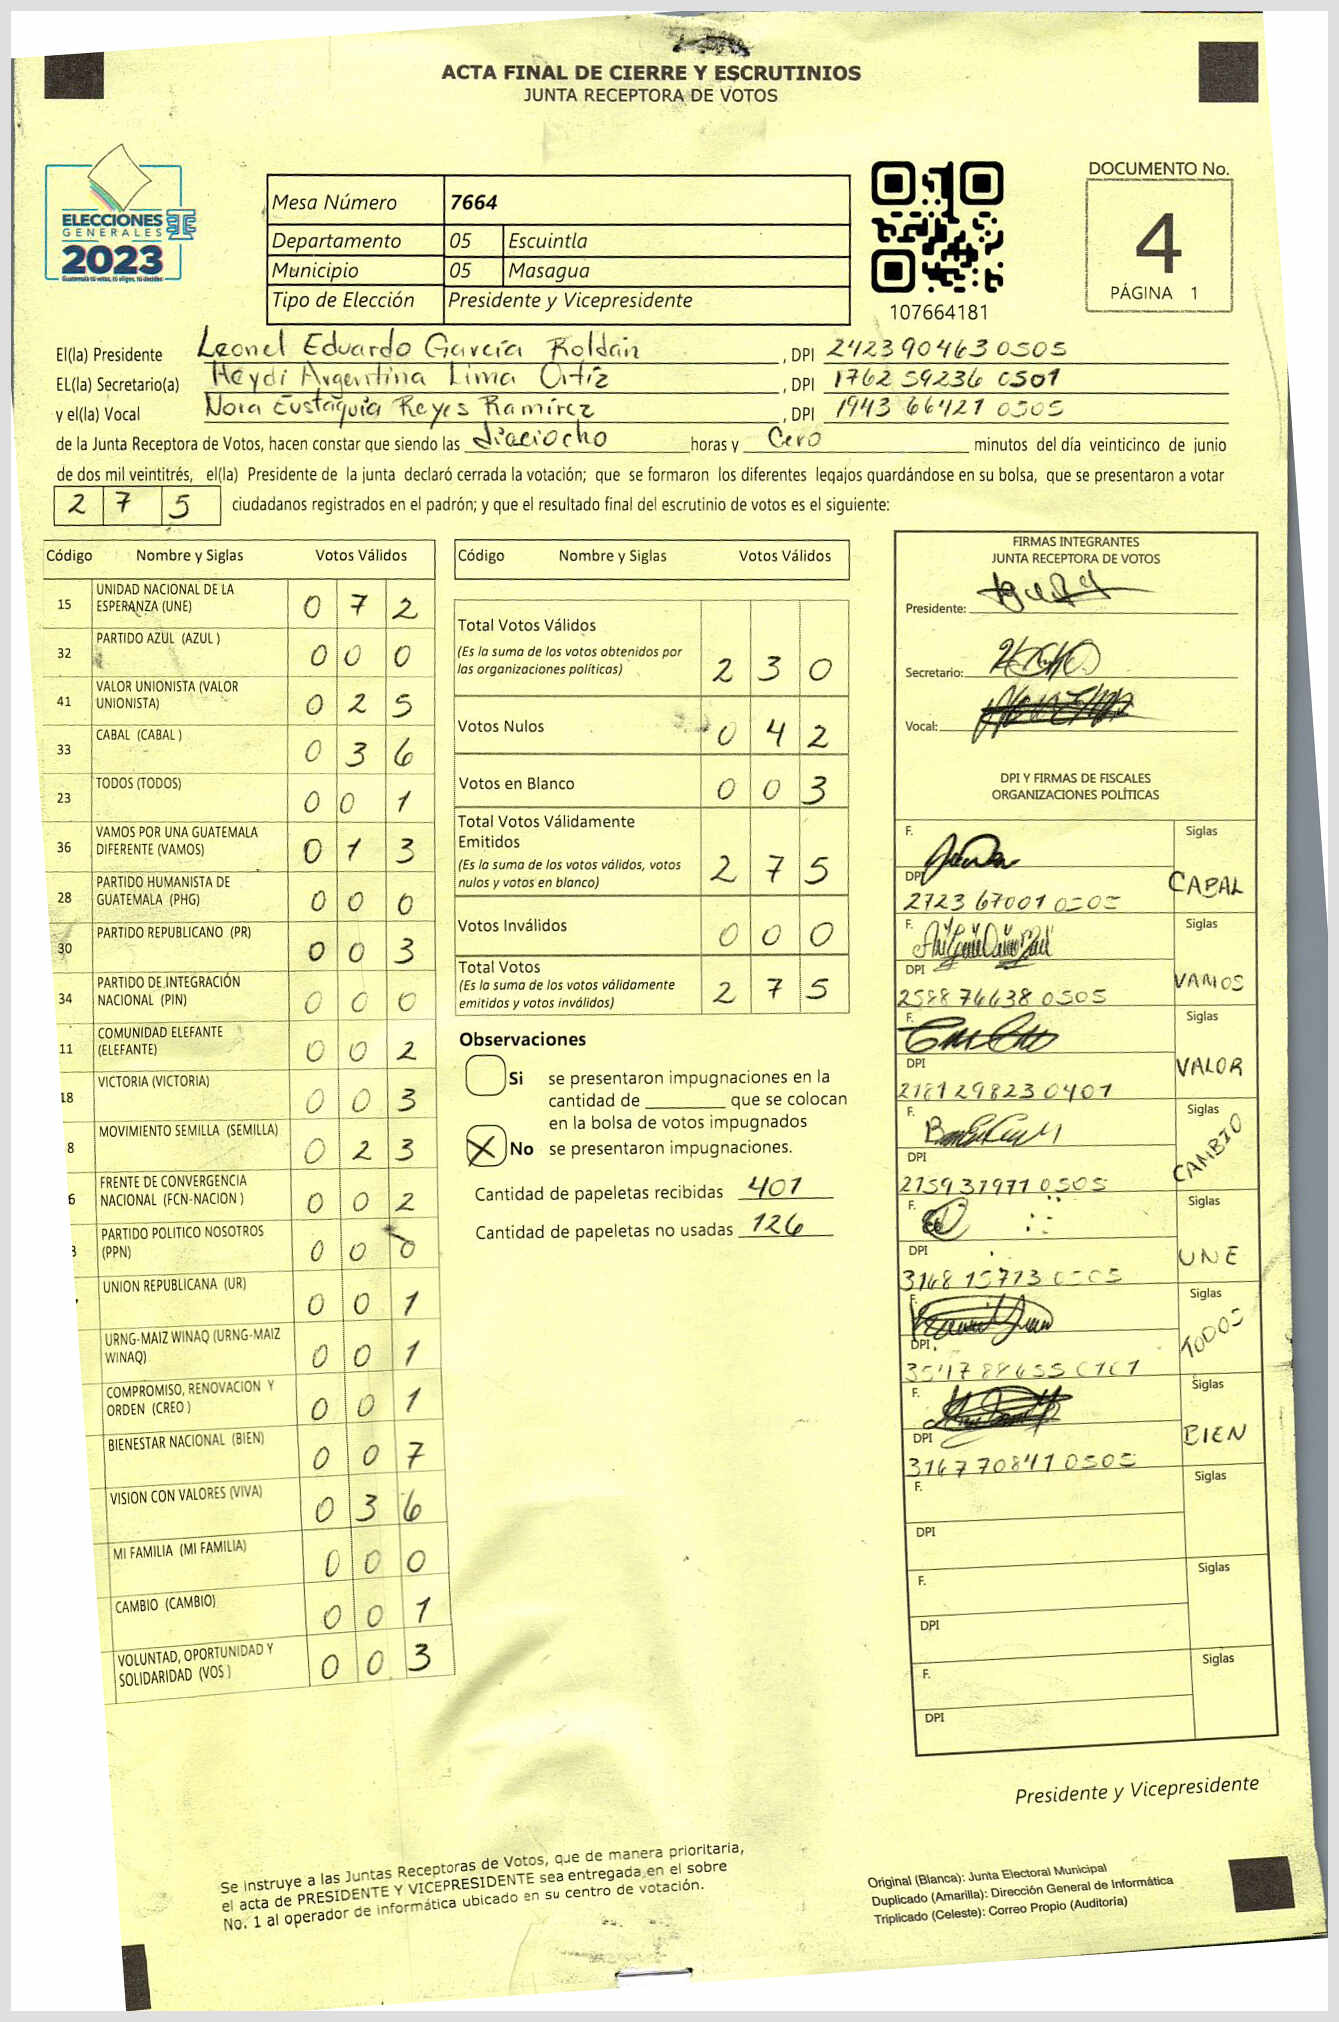 ACTA FINAL DE CIERRE Y ESCRUTINIOS
JUNTA RECEPTORA DE VOTOS
ELECCIONES
GENERALES
2023
Guatemala tú votas, tú eliges, tú decides
Mesa Número 7664
Departamento 05 Escuintla
Municipio 05 Masagua
Tipo de Elección Presidente y Vicepresidente
107664181
DOCUMENTO No.
4
PÁGINA 1
El(la) Presidente Leonel Eduardo García Roldán , DPI 2423904630505
EL(la) Secretario(a) Heydi Argentina Lima Ortiz , DPI 1762 59236 0501
y el(la) Vocal Nora Eustaquia Reyes Ramírez , DPI 1943 66421 0505
de la Junta Receptora de Votos, hacen constar que siendo las diaciocho horas y Cero minutos del día veinticinco de junio
de dos mil veintitrés, el(la) Presidente de la junta declaró cerrada la votación; que se formaron los diferentes legajos guardándose en su bolsa, que se presentaron a votar
2 7 5 ciudadanos registrados en el padrón; y que el resultado final del escrutinio de votos es el siguiente:
Código Nombre y Siglas Votos Válidos
15 UNIDAD NACIONAL DE LA ESPERANZA (UNE) 0 7 2
32 PARTIDO AZUL (AZUL ) 0 0 0
41 VALOR UNIONISTA (VALOR UNIONISTA) 0 2 5
33 CABAL (CABAL ) 0 3 6
23 TODOS (TODOS) 0 0 1
36 VAMOS POR UNA GUATEMALA DIFERENTE (VAMOS) 0 1 3
28 PARTIDO HUMANISTA DE GUATEMALA (PHG) 0 0 0
30 PARTIDO REPUBLICANO (PR) 0 0 3
34 PARTIDO DE INTEGRACIÓN NACIONAL (PIN) 0 0 0
11 COMUNIDAD ELEFANTE (ELEFANTE) 0 0 2
18 VICTORIA (VICTORIA) 0 0 3
8 MOVIMIENTO SEMILLA (SEMILLA) 0 2 3
6 FRENTE DE CONVERGENCIA NACIONAL (FCN-NACION ) 0 0 2
PARTIDO POLITICO NOSOTROS (PPN) 0 0 0
UNION REPUBLICANA (UR) 0 0 1
URNG-MAIZ WINAQ (URNG-MAIZ WINAQ) 0 0 1
COMPROMISO, RENOVACION Y ORDEN (CREO ) 0 0 1
BIENESTAR NACIONAL (BIEN) 0 0 7
VISION CON VALORES (VIVA) 0 3 6
MI FAMILIA (MI FAMILIA) 0 0 0
CAMBIO (CAMBIO) 0 0 1
VOLUNTAD, OPORTUNIDAD Y SOLIDARIDAD (VOS ) 0 0 3
Código Nombre y Siglas Votos Válidos
Total Votos Válidos
(Es la suma de los votos obtenidos por
las organizaciones políticas) 2 3 0
Votos Nulos 0 4 2
Votos en Blanco 0 0 3
Total Votos Válidamente
Emitidos
(Es la suma de los votos válidos, votos
nulos y votos en blanco) 2 7 5
Votos Inválidos 0 0 0
Total Votos
(Es la suma de los votos válidamente
emitidos y votos inválidos) 2 7 5
Observaciones
Si se presentaron impugnaciones en la
cantidad de ________ que se colocan
en la bolsa de votos impugnados
X No se presentaron impugnaciones.
Cantidad de papeletas recibidas 401
Cantidad de papeletas no usadas 126
FIRMAS INTEGRANTES
JUNTA RECEPTORA DE VOTOS
Presidente:
Secretario:
Vocal:
DPI Y FIRMAS DE FISCALES
ORGANIZACIONES POLÍTICAS
F. Siglas
DPI CABAL
2723 67001 0505
F. Siglas
DPI VAMOS
2588 76638 0505
F. Siglas
DPI VALOR
2181 29823 0401
F. Siglas
DPI CAMBIO
2159 31971 0505
F. Siglas
DPI UNE
3168 15713 0505
F. Siglas
DPI TODOS
F. Siglas
DPI BIEN
3167 70841 0505
F. Siglas
DPI
F. Siglas
DPI
F. Siglas
DPI
Presidente y Vicepresidente
Se instruye a las Juntas Receptoras de Votos, que de manera prioritaria,
el acta de PRESIDENTE Y VICEPRESIDENTE sea entregada en el sobre
No. 1 al operador de informática ubicado en su centro de votación.
Original (Blanca): Junta Electoral Municipal
Duplicado (Amarilla): Dirección General de Informática
Triplicado (Celeste): Correo Propio (Auditoria)